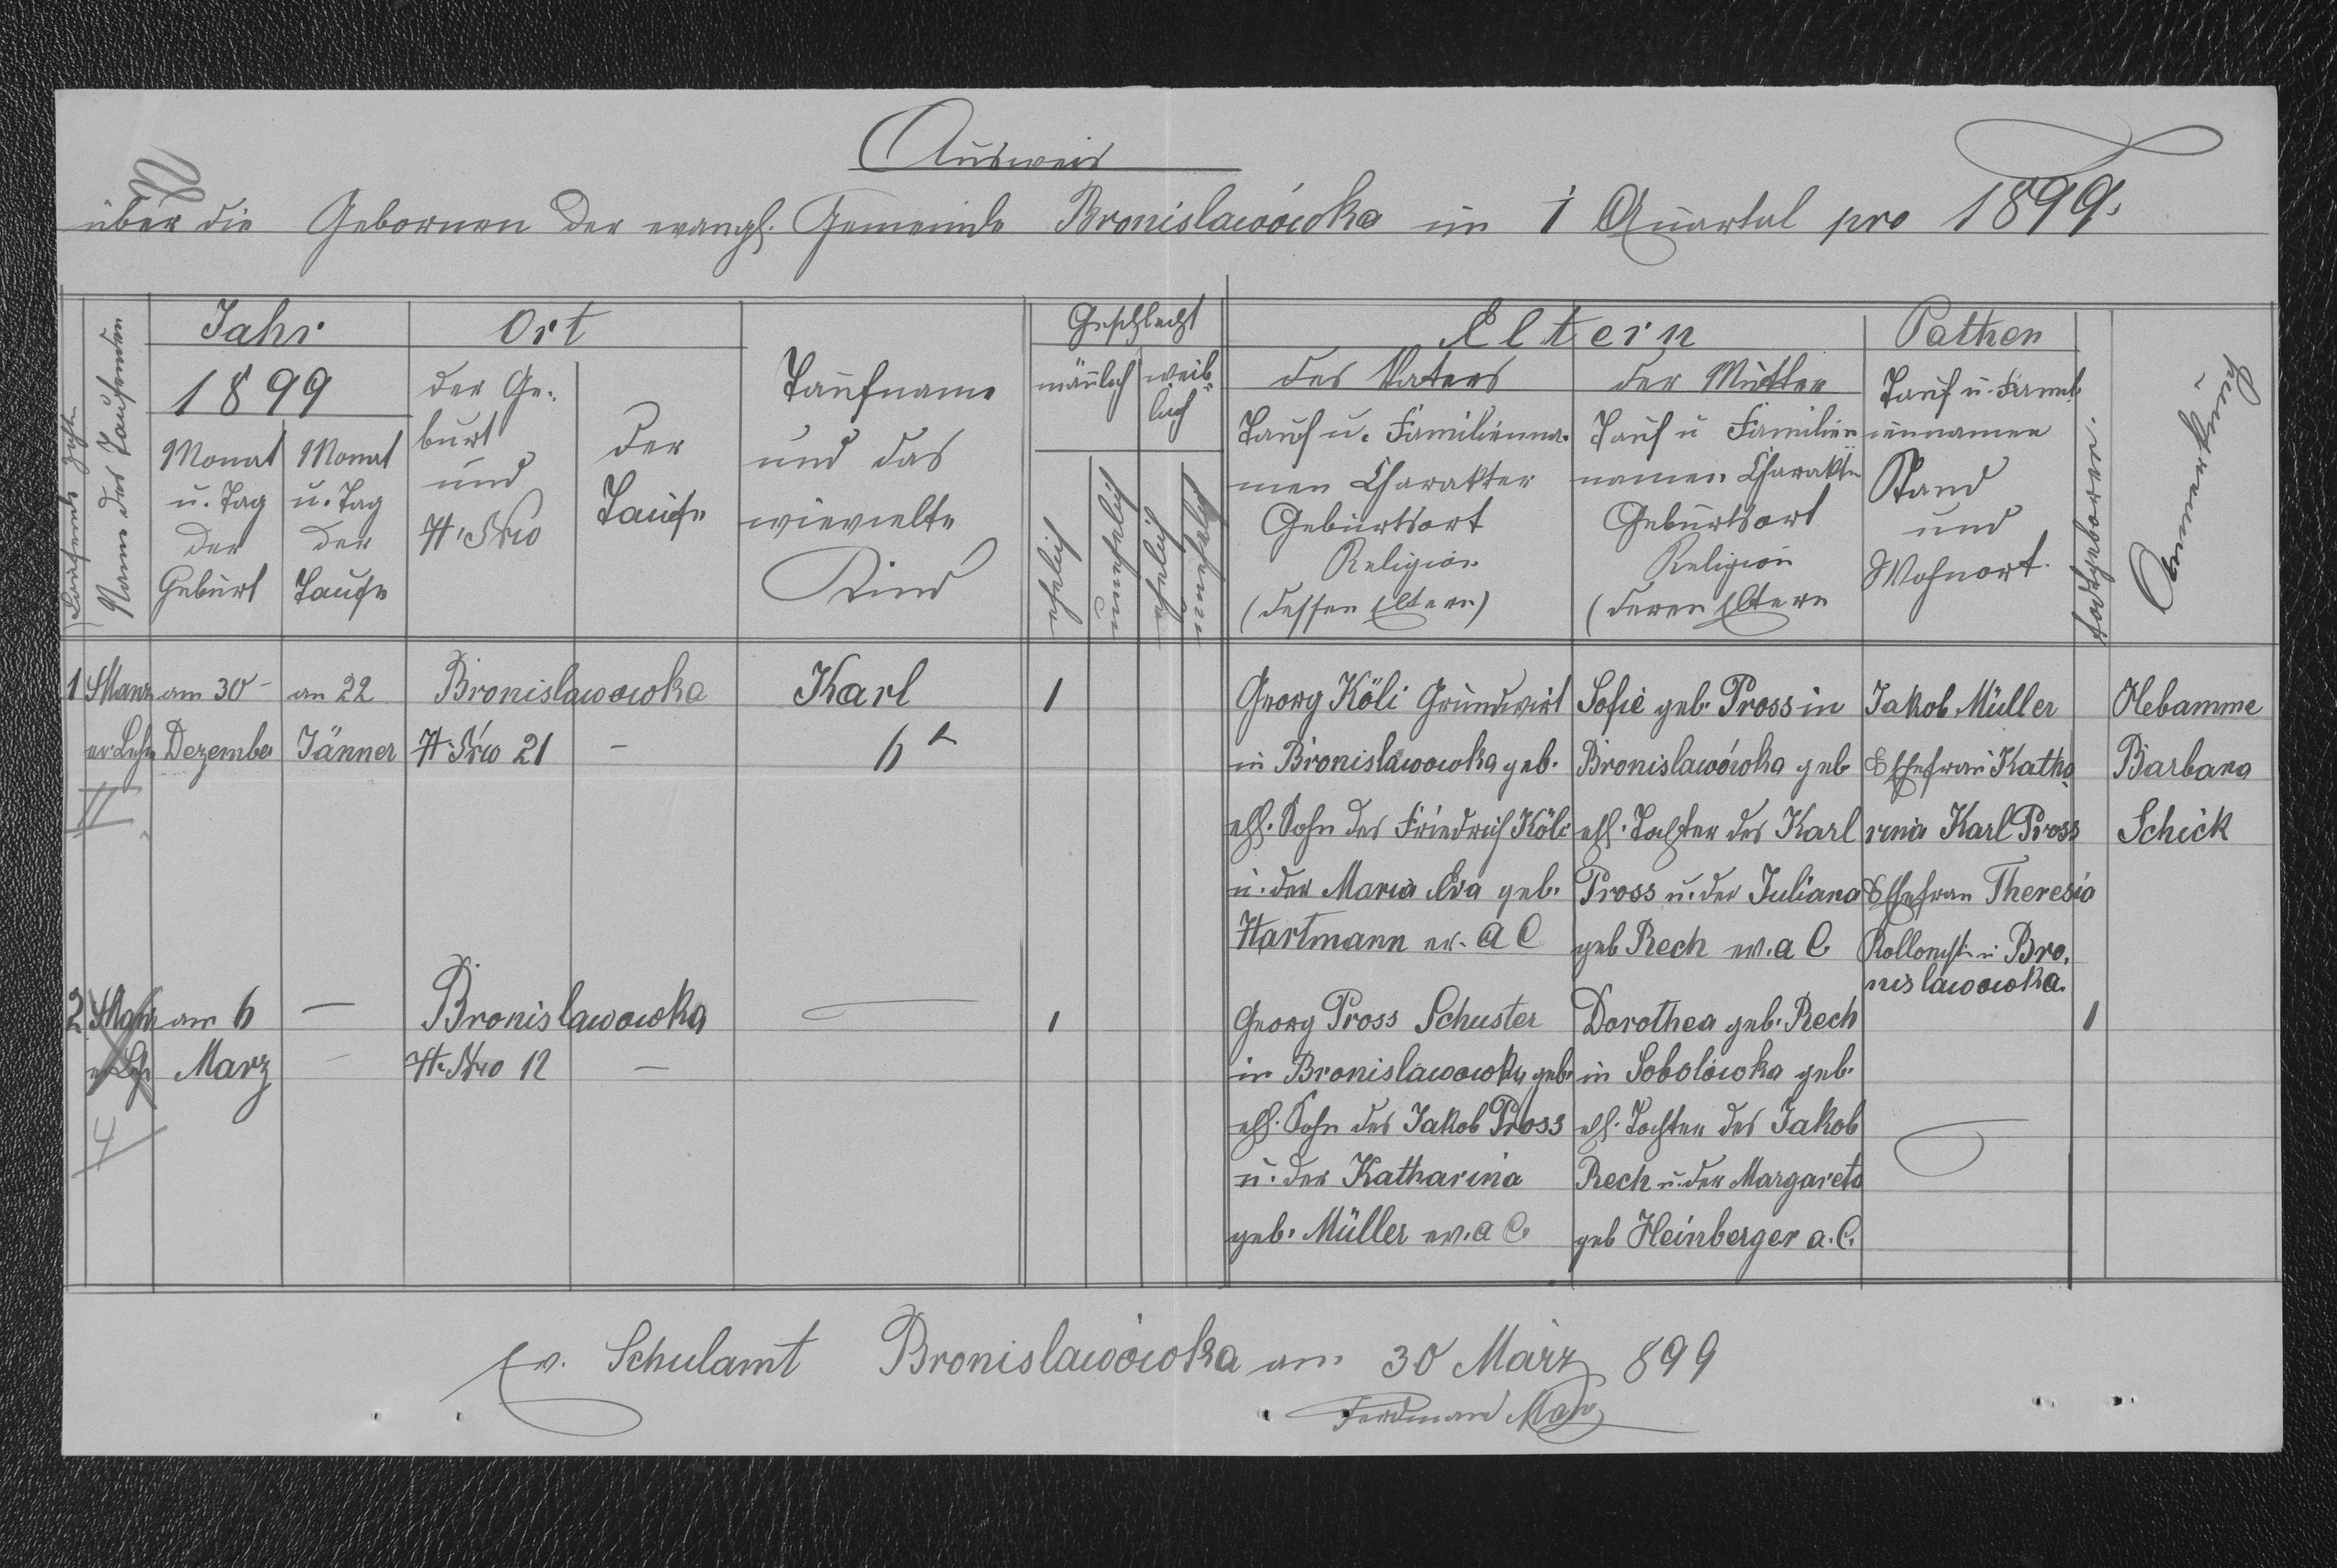 Ausweis
über die Gebornen der evangl. Gemeinde Bronislawówka im 1 Quartal pro 1899.
Laufende Zahl
Name des Taufenden
Jahr
1899
Monat u. Tag der Geburt
Monat u. Tag der Taufe
Ort
der Ge-
burt
und
H. Nro
der
Taufe
Taufname
und das
wievielte
Kind
Geschlecht
mänlich
weib-
lich
ehelich
unehelich
ehelich
unehelich
Eltern
des Vaters
Tauf u. Familienna-
men Charakter
Geburtsort
Religion
(dessen Eltern)
der Mutter
Tauf u Familien
namen Charakter
Geburtsort
Religion
(deren Eltern
Pathen
Tauf u. Famil-
iennamen
Stand
und
Wohnort.
todtgeboren.
Anmerkung
1
am 30
Dezember
an 22
Jänner
Bronislawowka
H. Nro 21
–
Karl
6t
1
Georg Köli Grundwirt
in Bronislawowka geb.
ehl. Sohn des Friedrich Köli
u. der Maria Eva geb.
Hartmann ev. A C
Sofie geb. Pross in
Bronislawówka geb
ehl. Tochter des Karl
Pross u. der Juliana
geb Rech ev. a C
Jakob Müller
Ehefrau Katha
rina Karl Pross
Ehefrau Theresia
Kollonist in Bro-
nislawowka.
Hebamme
Barbara
Schick
2
am 6
Marz
–
–
Bronislawowka
H. Nro 12
–
1
Georg Pross Schuster
in Bronislawowka geb.
ehl. Sohn des Jakob Pross
u. der Katharina
geb. Müller ev. a C.
Dorothea geb. Rech
in Sobolówka geb.
ehl. Tochter des Jakob
Rech u. der Margareta
geb Heinberger a. C.
1
Ev. Schulamt Bronislawówka am 30 März 899
Ferdinand